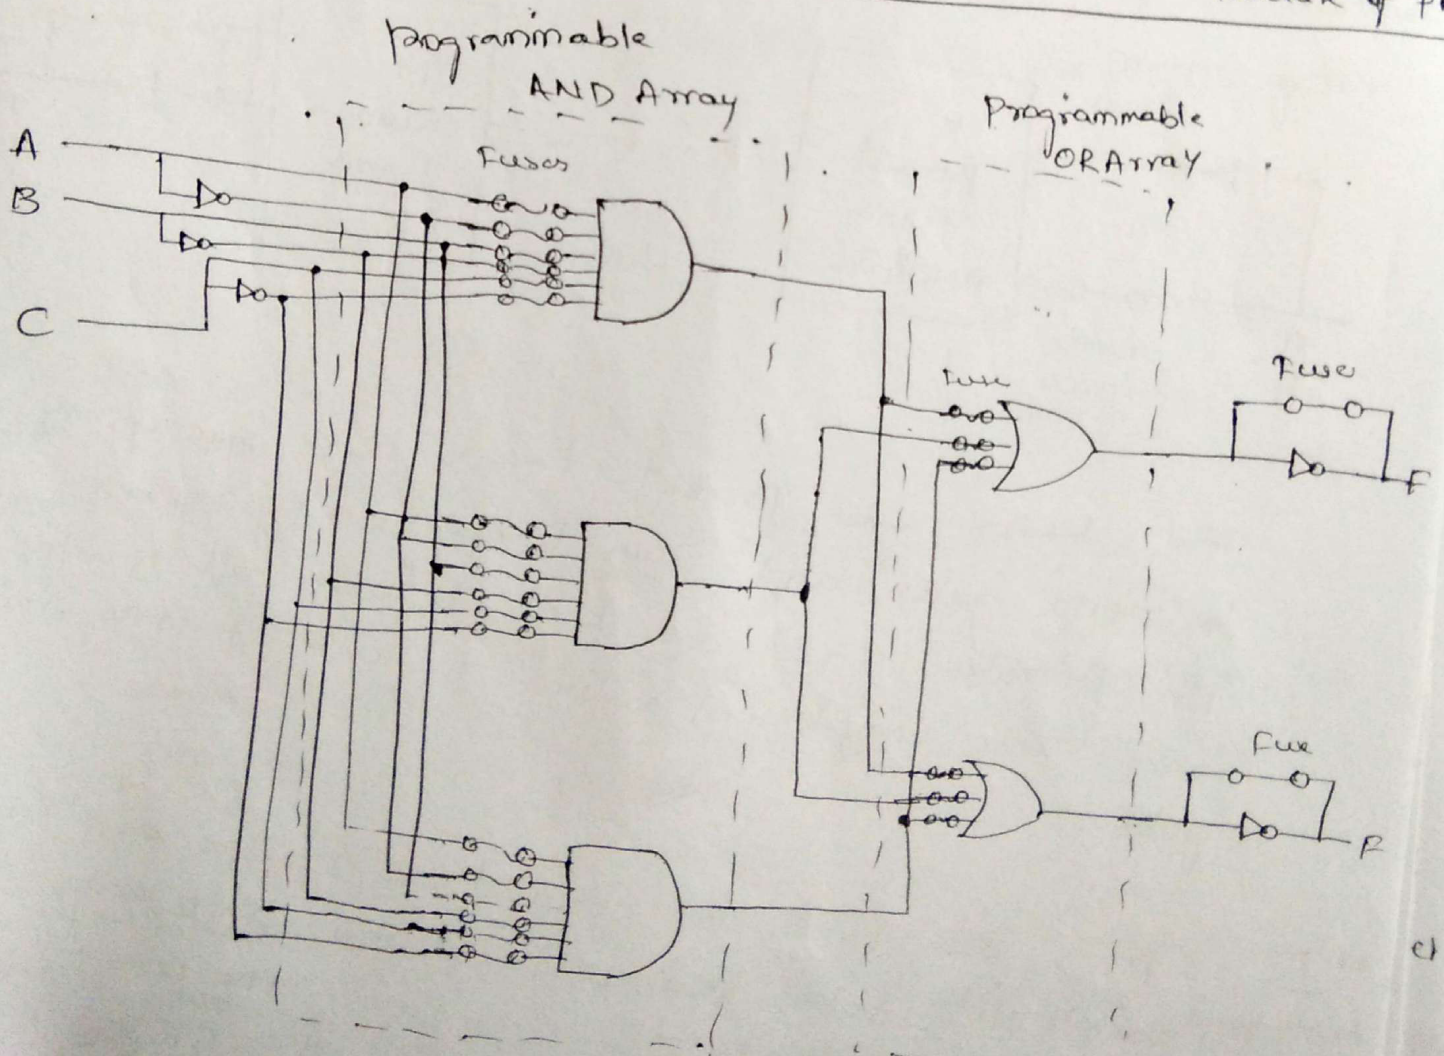 Programmable
AND Array
Programmable
OR Array
Fuses
A
B
C
Fuse
Fuse
F
Fuse
F